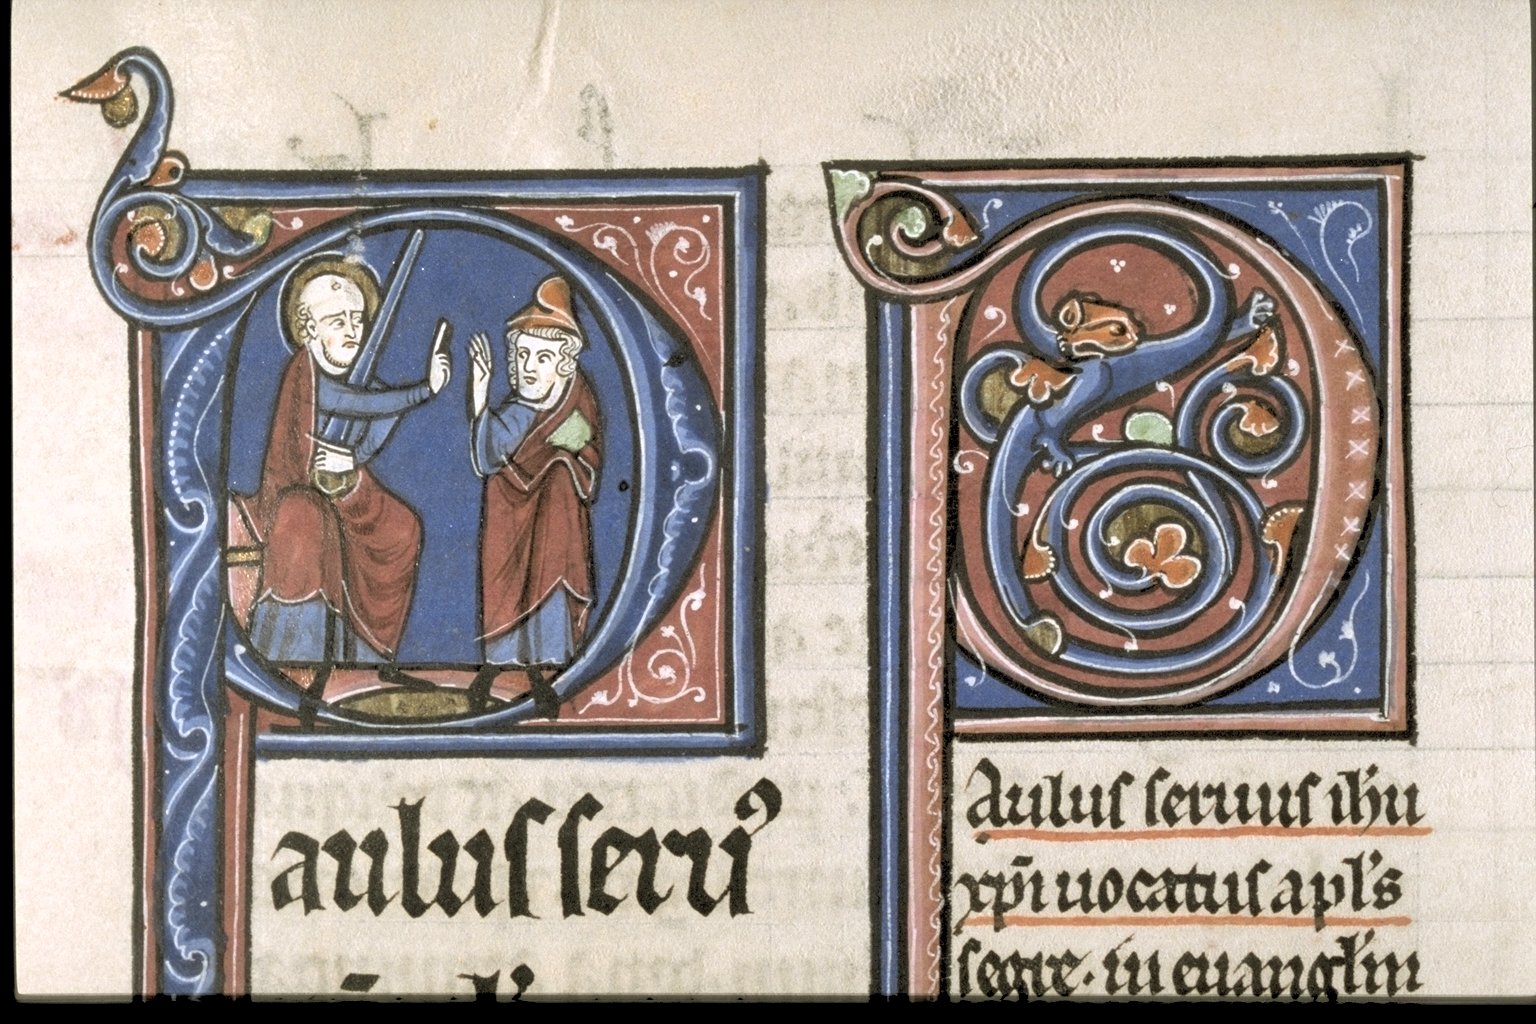 Paulus seruꝰ
Paulus seruus ih'u
xp̄i uocatus apl's
segre· in euangl'iu